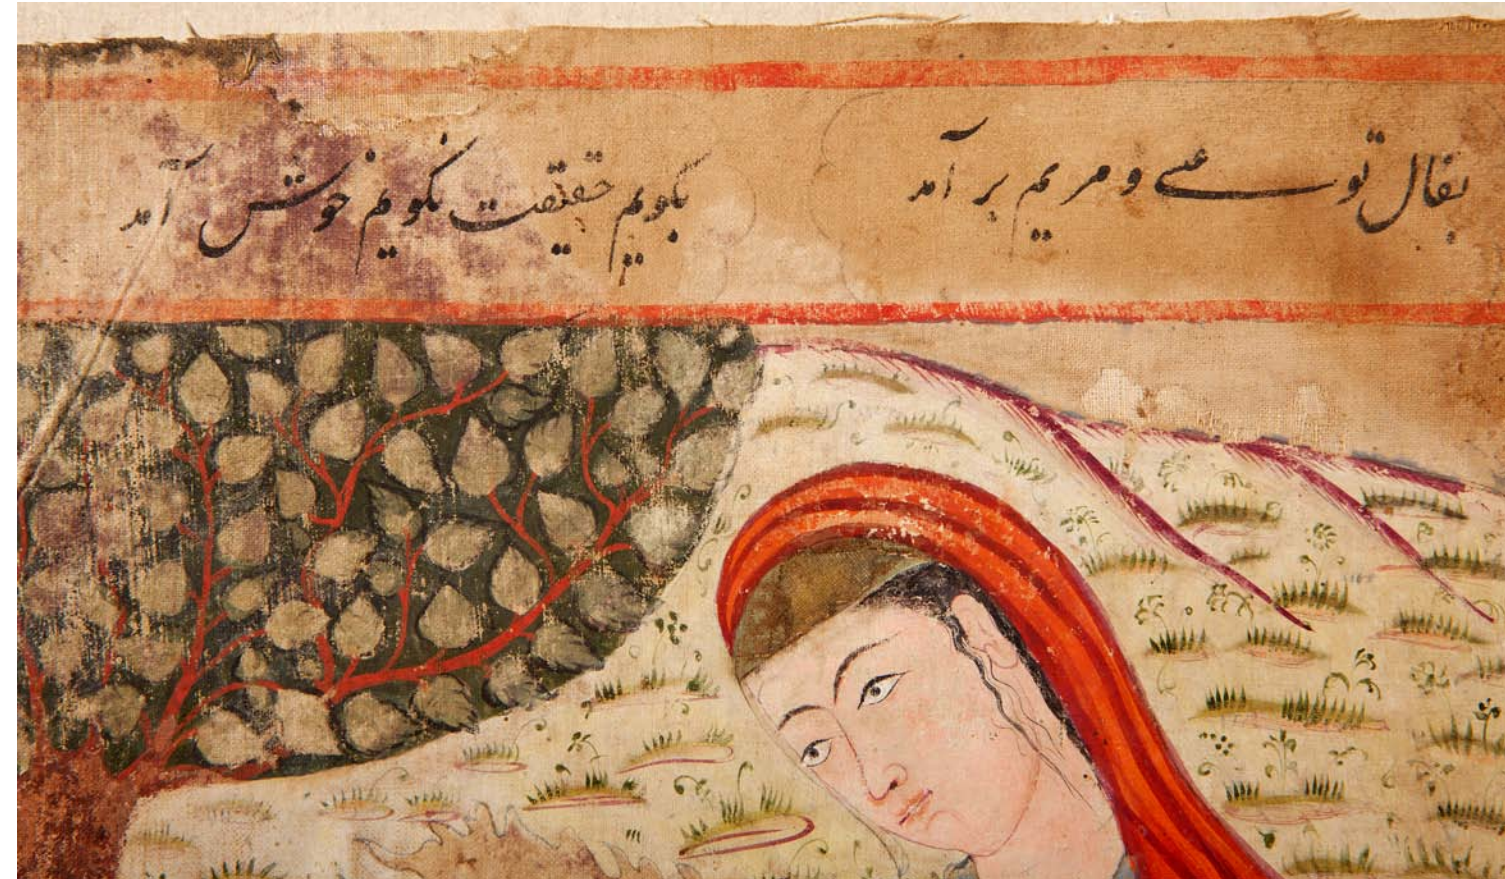 بفال تو عیسی و مریم بر آمد
بگویم حقیقت نگویم خوش آمد